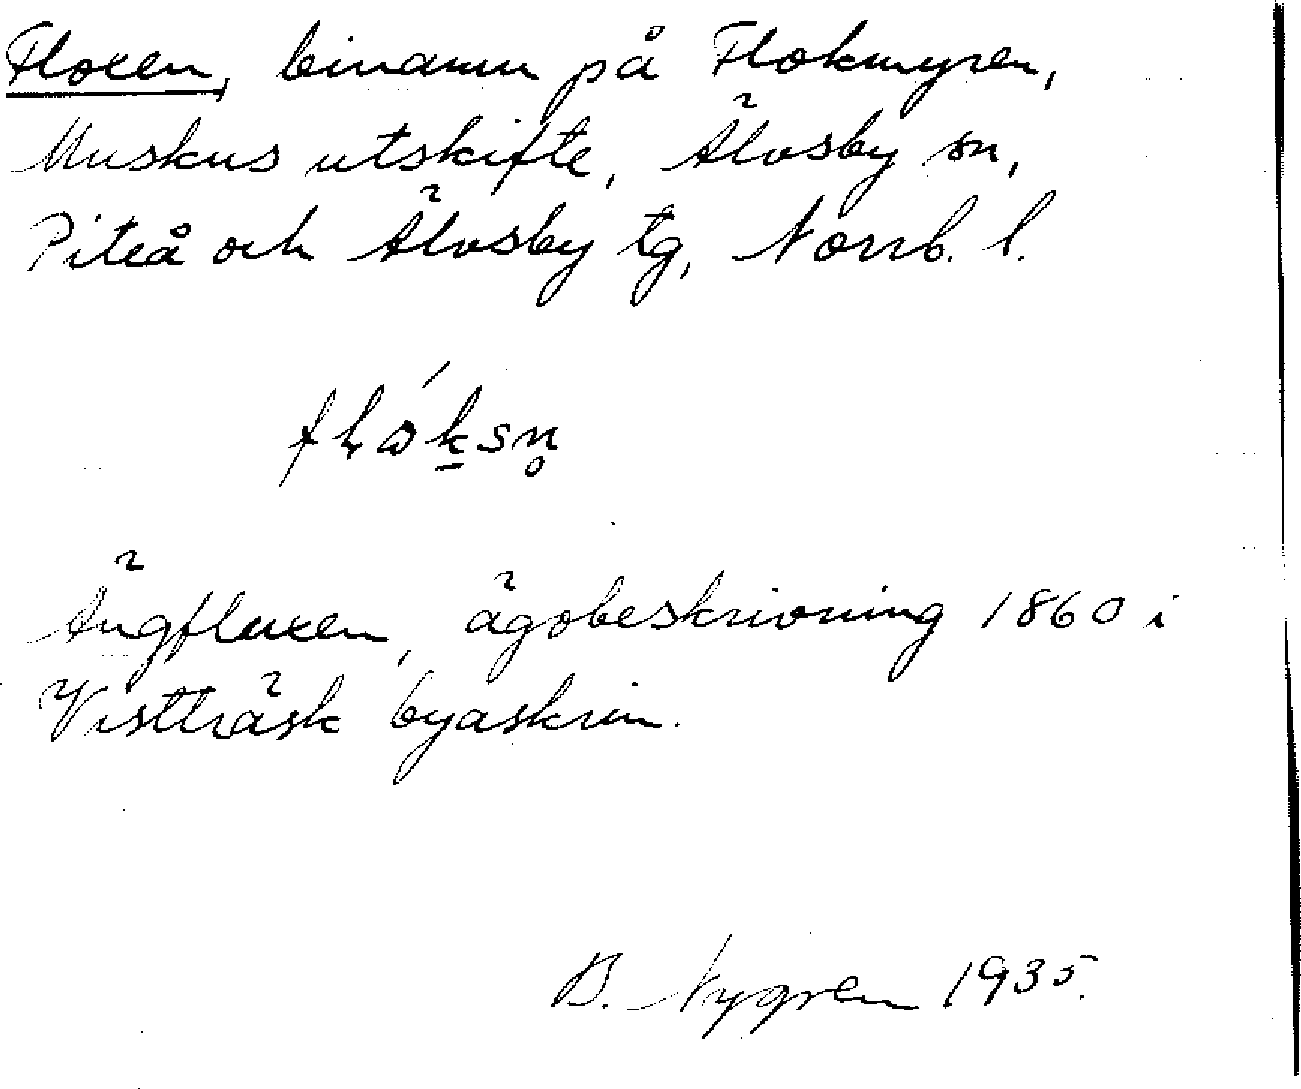 Floxen, binamn på Flokmyren,
Muskus utskifte, Älvsby sn,
Piteå och Älvsby tg, Norrb. l.
Ängfluxen, ägobeskrivning 1860 i
Vistträsk byaskrin.
B. Nygren 1935.